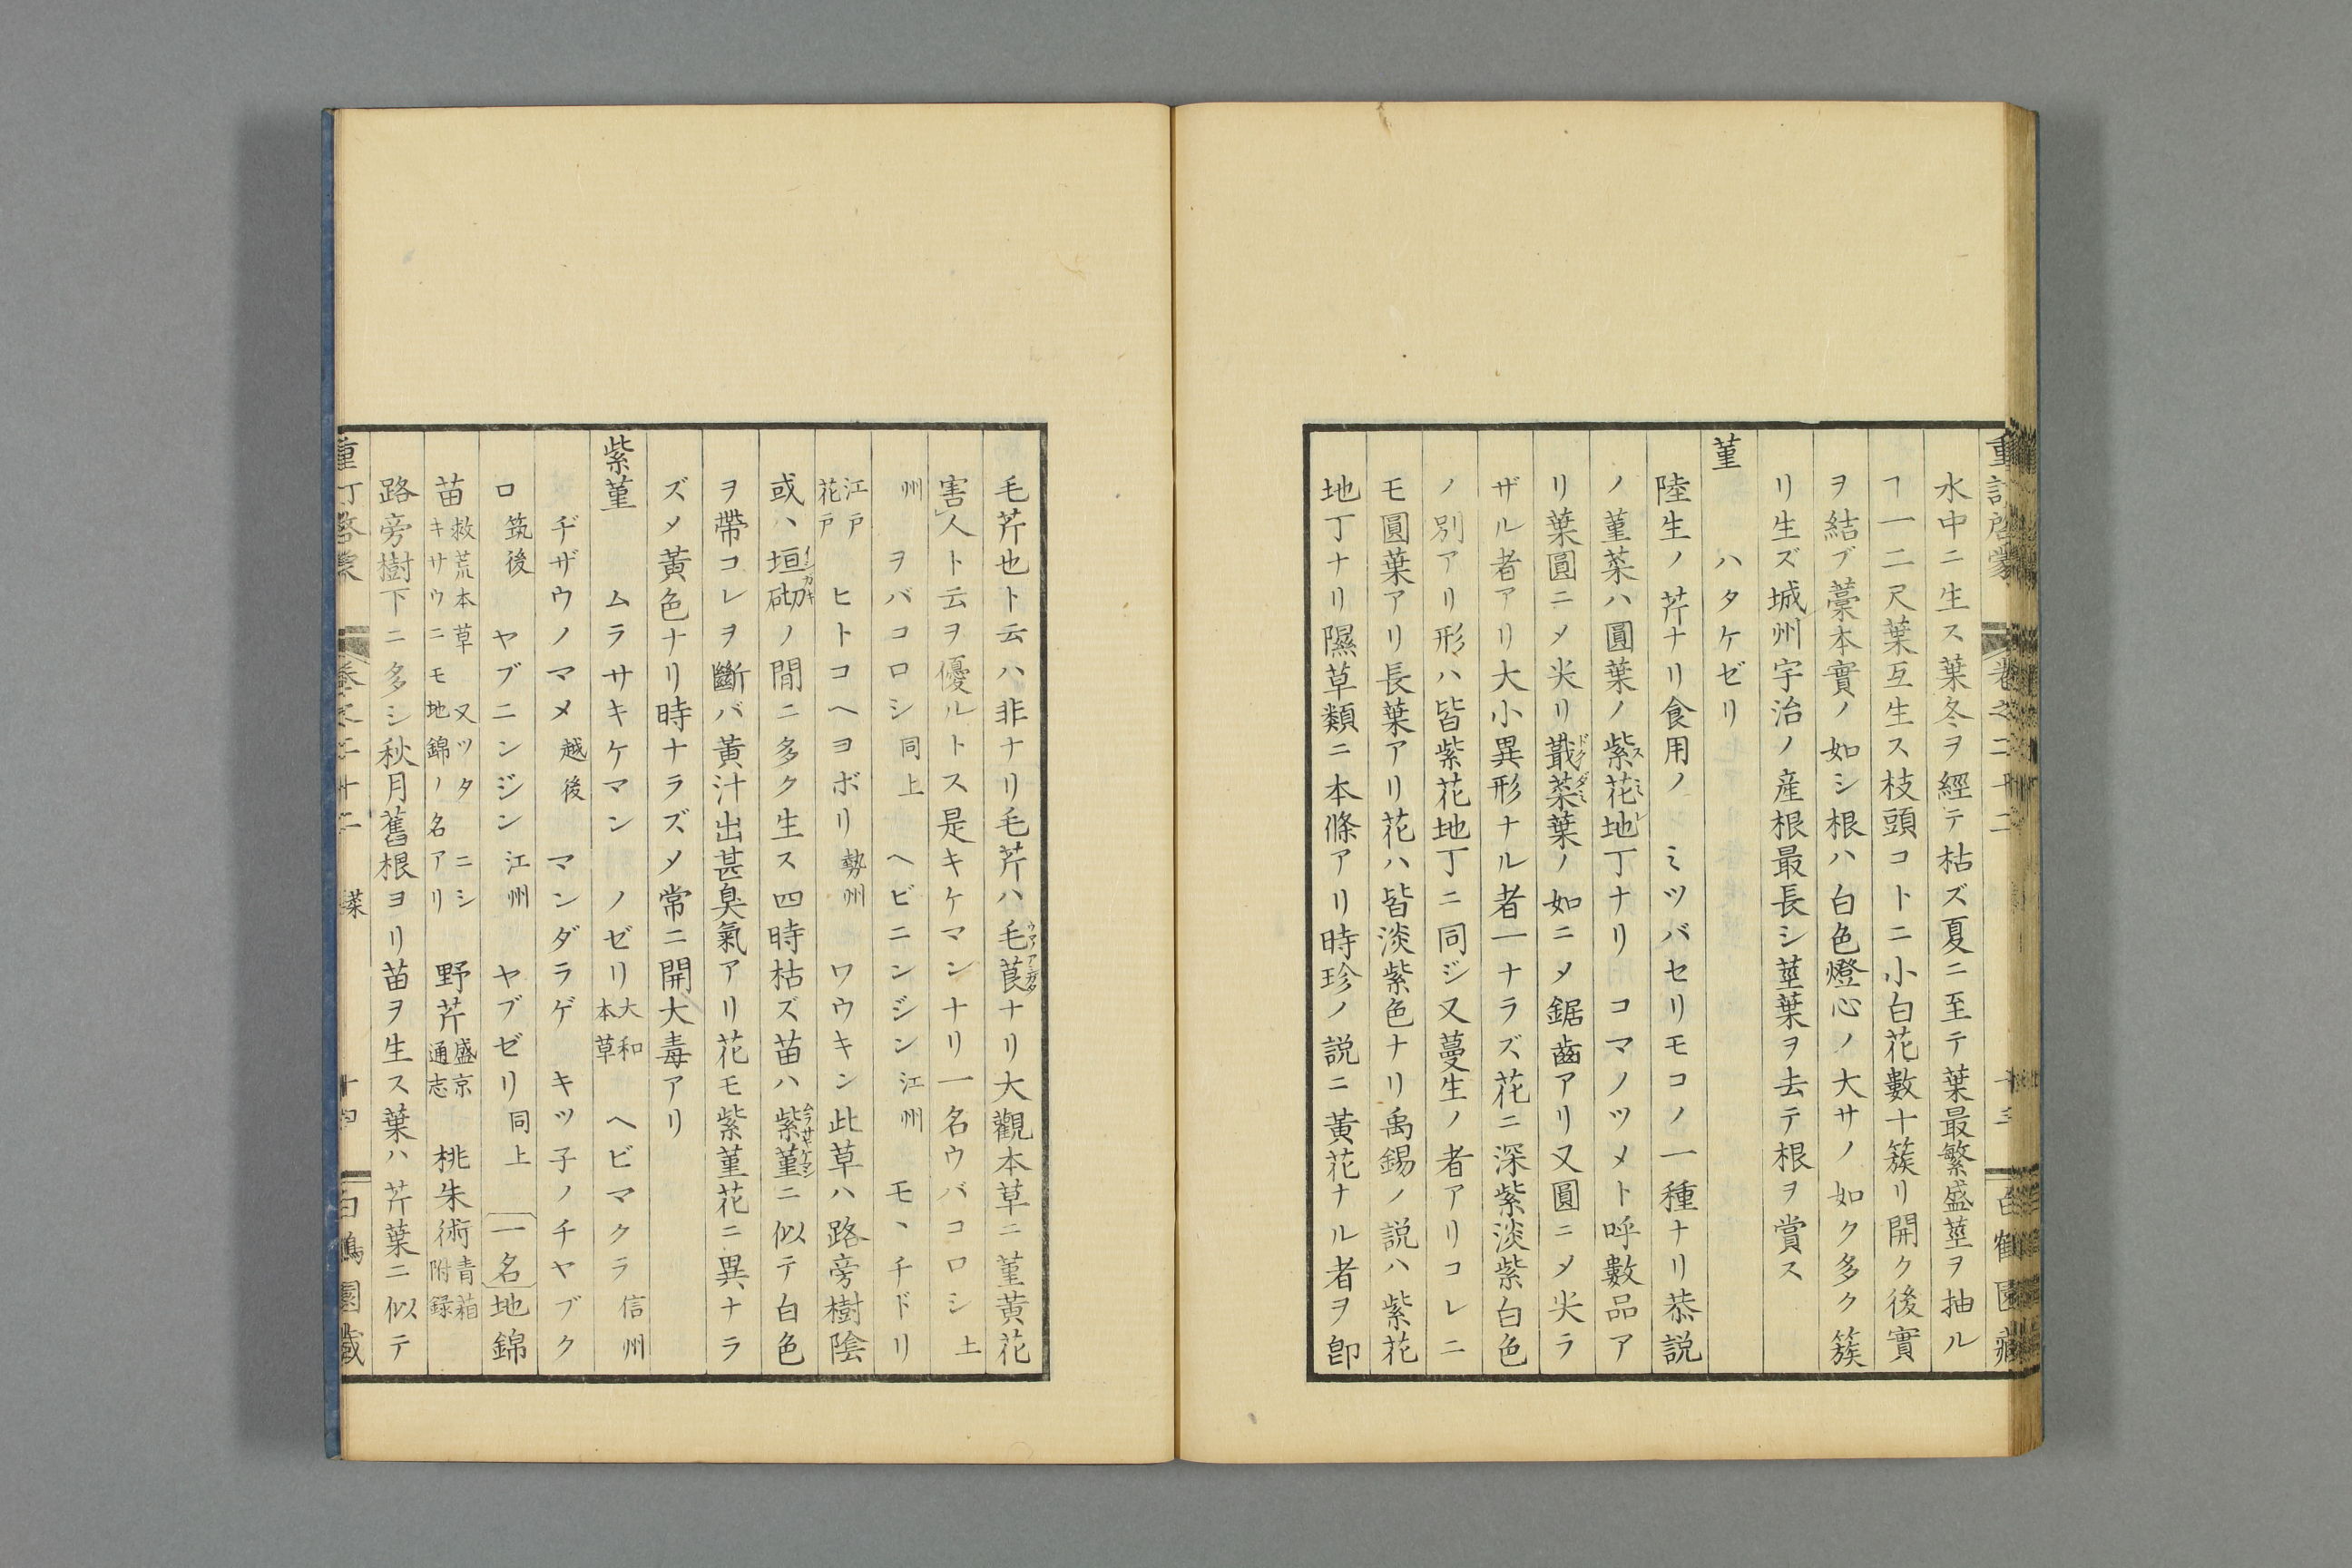 重訂啓蒙 卷之二十二 十三 白鶴園藏
水中ニ生ス葉冬ヲ經テ枯ズ夏ニ至テ葉最繁盛莖ヲ抽ル
ヿ一二尺葉互生ス枝頭コトニ小白花數十簇リ開ク後實
ヲ結ブ藁本實ノ如シ根ハ白色燈心ノ大サノ如ク多ク簇
リ生ズ城州宇治ノ産根最長シ莖葉ヲ去テ根ヲ賞ス
菫 ハタケゼリ
陸生ノ芹ナリ食用ノ ミツバセリモコノ一種ナリ恭説
ノ菫菜ハ圓葉ノ紫花地丁ナリ コマノツメト呼數品ア
スミレ
リ葉圓ニメ尖リ蕺菜葉ノ如ニメ鋸齒アリ又圓ニメ尖ラ
ドクダミ
ザル者アリ大小異形ナル者一ナラズ花ニ深紫淡紫白色
ノ別アリ形ハ皆紫花地丁ニ同ジ又蔓生ノ者アリコレニ
モ圓葉アリ長葉アリ花ハ皆淡紫色ナリ禹錫ノ説ハ紫花
地丁ナリ隰草類ニ本條アリ時珍ノ説ニ黃花ナル者ヲ卽
毛芹也ト云ハ非ナリ毛芹ハ毛莨ナリ大觀本草ニ菫黃花
ウマノアシガタ
害人ト云ヲ優ルトス是キケマンナリ一名ウバコロシ 土
州 ヲバコロシ 同上 ヘビニンジン 江州 モヽチドリ
江戸
花戸
ヒトコヘヨボリ 勢州 ワウキン 此草ハ路旁樹陰
或ハ垣砌ノ間ニ多ク生ス四時枯ズ苗ハ紫菫ニ似テ白色
イシガキ
ムラサキケマン
ヲ帶コレヲ斷バ黃汁出甚臭氣アリ花モ紫菫花ニ異ナラ
ズメ黃色ナリ時ナラズメ常ニ開大毒アリ
紫菫 ムラサキケマン ノゼリ 大和本草 ヘビマクラ 信州
ヂザウノマメ 越後 マンダラゲ キツ子ノチヤブク
ロ 筑後 ヤブニンジン 江州 ヤブゼリ 同上 一名 地錦
苗 救荒本草 又ツタ ニシ
キサウニモ地錦ノ名アリ
野芹 盛京通志 桃朱術 青葙附録
路旁樹下ニ多シ秋月舊根ヨリ苗ヲ生ス葉ハ芹葉ニ似テ
重訂啓蒙 卷之二十二 菜 十四 白鶴園藏